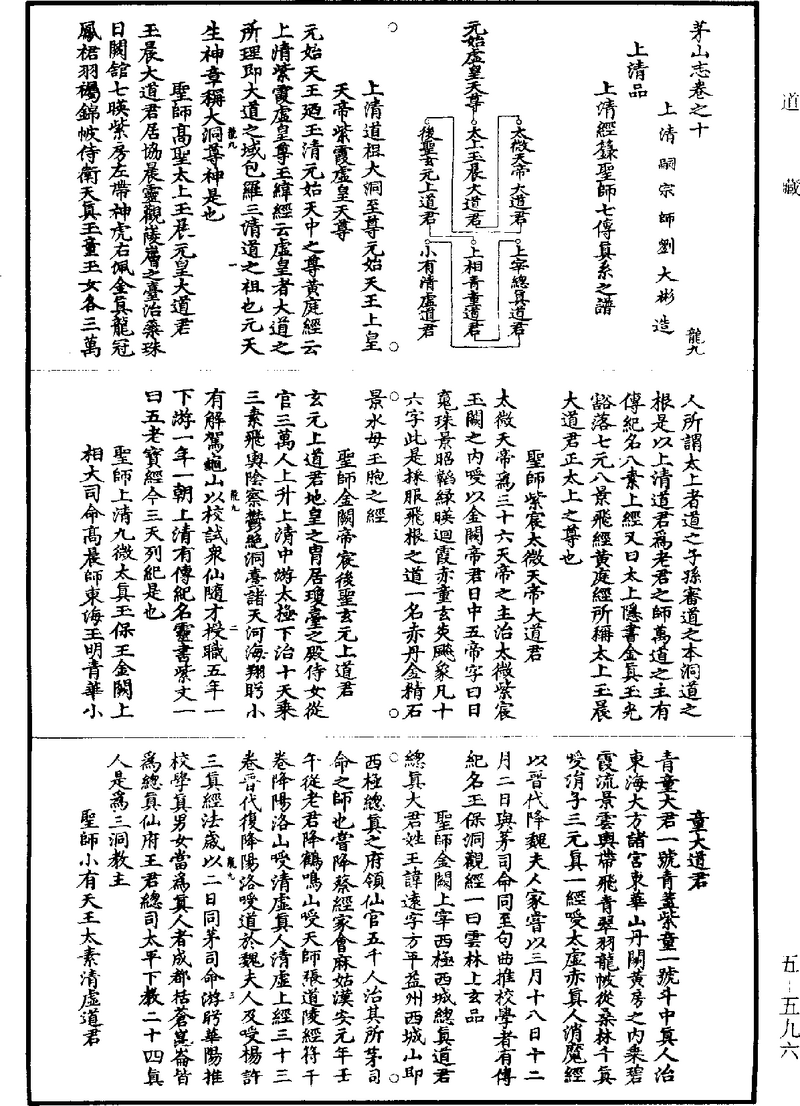 道藏
茅山志卷之十
龍九
上清嗣宗師劉大彬造
上清品
上清經籙聖師七傳真系之譜
元始虛皇天尊
太微天帝大道君
太上玉晨大道君
後聖玄元上道君
上宰總真道君
上相青童道君
小有清虛道君
上清道祖大洞至尊元始天王上皇
天帝紫霞虛皇天尊
元始天王廼玉清元始天中之尊黃庭經云
上清紫霞虛皇尊玉緯經云虛皇者大道之
所理即大道之域包羅三清道之祖也元天
生神章稱大洞尊神是也
聖師高聖太上玉晨元皇大道君
玉晨大道君居協晨靈觀陵層之臺治蘂珠
日闕舘七暎紫房左帶神虎右佩金真龍冠
鳳裙羽襡錦帔侍衛天真玉童玉女各三萬
人所謂太上者道之子孫審道之本洞道之
根是以上清道君爲老君之師萬道之主有
傳紀名八素上經又曰太上隱書金真玉光
豁落七元八景飛經黃庭經所稱太上玉晨
大道君正太上之尊也
聖師紫宸太微天帝大道君
太微天帝爲三十六天帝之主治太微紫宸
玉闕之內受以金闕帝君日中五帝字曰日
䰟珠景昭韜綠暎迴霞赤童玄炎飈象凡十
六字此是採服飛根之道一名赤丹金精石
景水母玉胞之經
聖師金闕帝宸後聖玄元上道君
玄元上道君地皇之胄居瓊臺之殿侍女從
官三萬人上升上清中游太極下治十天乘
三素飛輿陰察鬱絕洞臺諸天河海翔眄小
有解駕龜山以校試衆仙隨才授職五年一
下游一年一朝上清有傳紀名靈書紫文一
曰五老寶經今三天列紀是也
聖師上清九微太真玉保王金闕上
相大司命高晨師東海王明青華小
童大道君
青童大君一號青蓋紫童一號斗中真人治
東海大方諸宮東華山丹闕黃房之內乘碧
霞流景雲輿帶飛青翠羽龍帔從桑林千真
受涓子三元真一經受太虛赤真人消魔經
以晉代降魏夫人家嘗以三月十八日十二
月二日與茅司命同至句曲推校學者有傳
紀名玉保洞觀經一曰雲林上玄品
聖師金闕上宰西極西城總真道君
總真大君姓王諱遠字方平益州西城山即
西極總真之府領仙官五千人治其所茅司
命之師也嘗降蔡經家會麻姑漢安元年壬
午從老君降鶴鳴山受天師張道陵經符千
卷降陽洛山受清虛真人清虛上經三十三
卷晉代復降陽洛受道於魏夫人及受楊許
三真經法歲以二日同茅司命游眄華陽推
校學真男女當爲真人者成都括蒼崑崙皆
爲總真仙府王君總司太平下教二十四真
人是爲三洞教主
聖師小有天王太素清虛道君
龍九
一
龍九
二
龍九
三
五-五九六